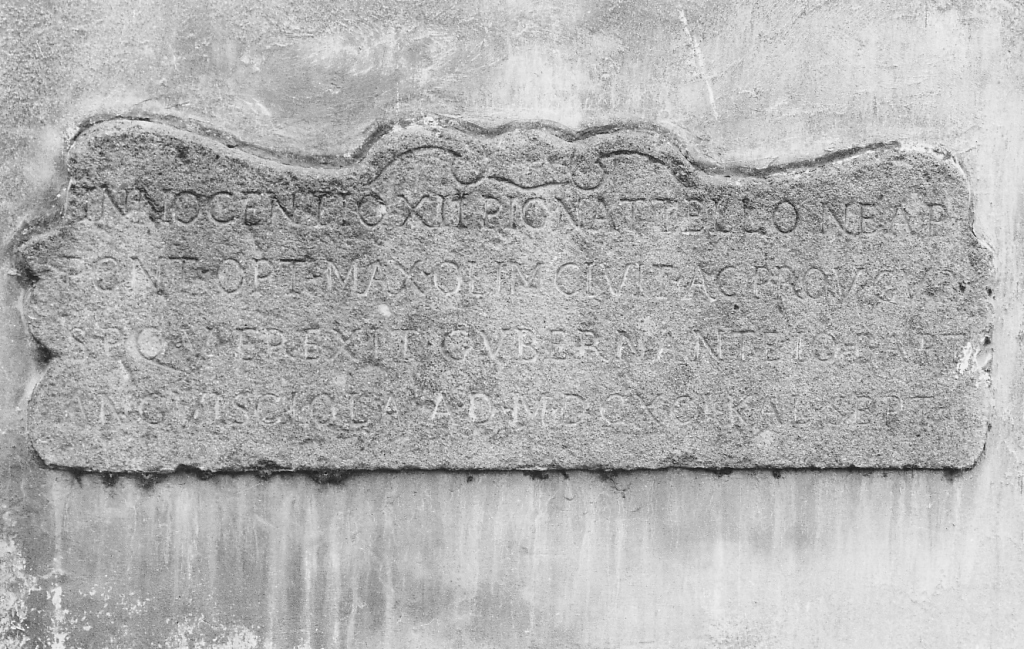 INNOCENTIO XII PIGNATTELLO NEAP
PONT·OPT·MAX·OLIM CIVIT·AC PROV·GVB
S·P·Q·V EREXIT GVBERNANTE IO·BAPT
ANGVISCIOLA A·D·MDCXCI·KAL·SEPT